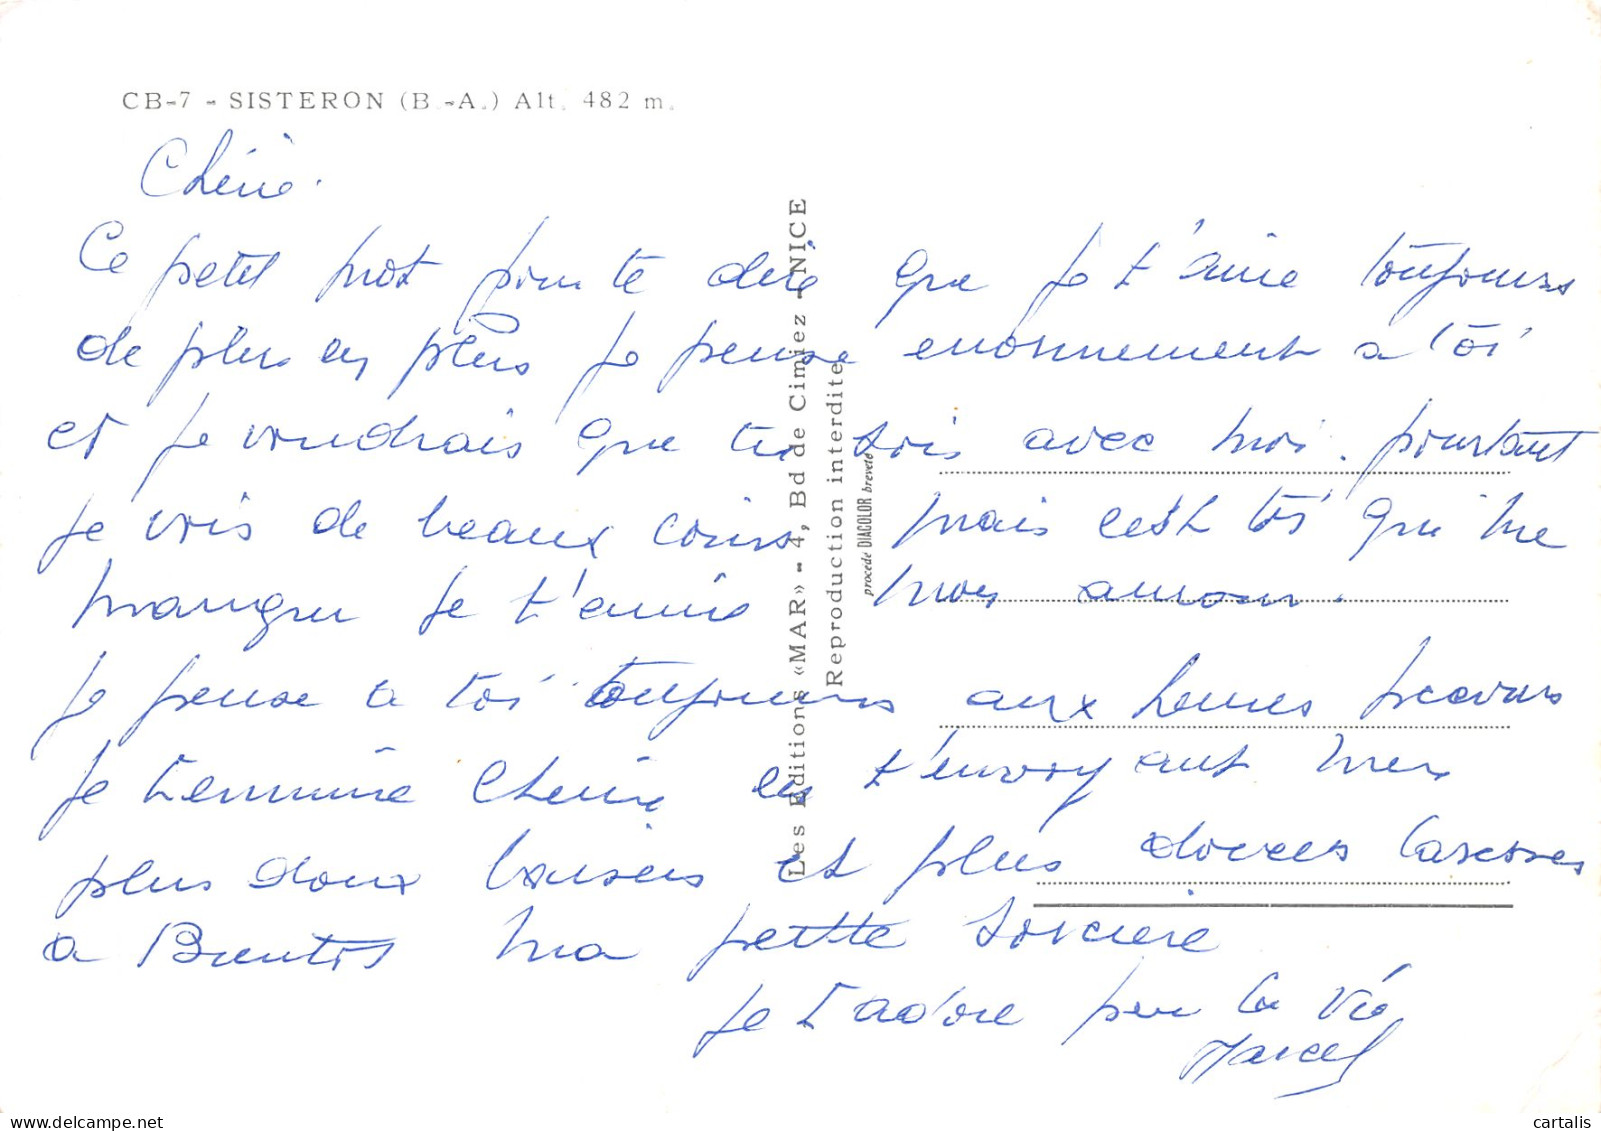 CB-7 - SISTERON (B.-A.) Alt. 482 m.
Chérie.
Ce petit mot pour te dire que je t'aime toujours
de plus en plus je pense enormement a toi
et je voudrais que tu sois avec moi. pourtant
je vois de beaux coins mais c'est toi qui me
manque je t'aime mon amour.
je pense a toi toujours aux heures prevues
je termine cherie en t'envoyant mes
plus doux baisers et plus douces caresses
a Bientot ma petite sorciere
je t'adore pour la vie
Marcel
Les Editions «MAR» - 4, Bd de Cimiez - NICE
Reproduction interdite
procédé DIACOLOR breveté
cartalis